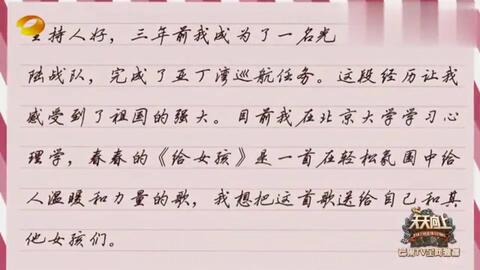 主持人好，三年前我成为了一名光
陆战队，完成了亚丁湾巡航任务。这段经历让我
感受到了祖国的强大。目前我在北京大学学习心
理学，春春的《给女孩》是一首在轻松氛围中给
人温暖和力量的歌，我想把这首歌送给自己和其
他女孩们。
天天向上
芒果TV全网独播